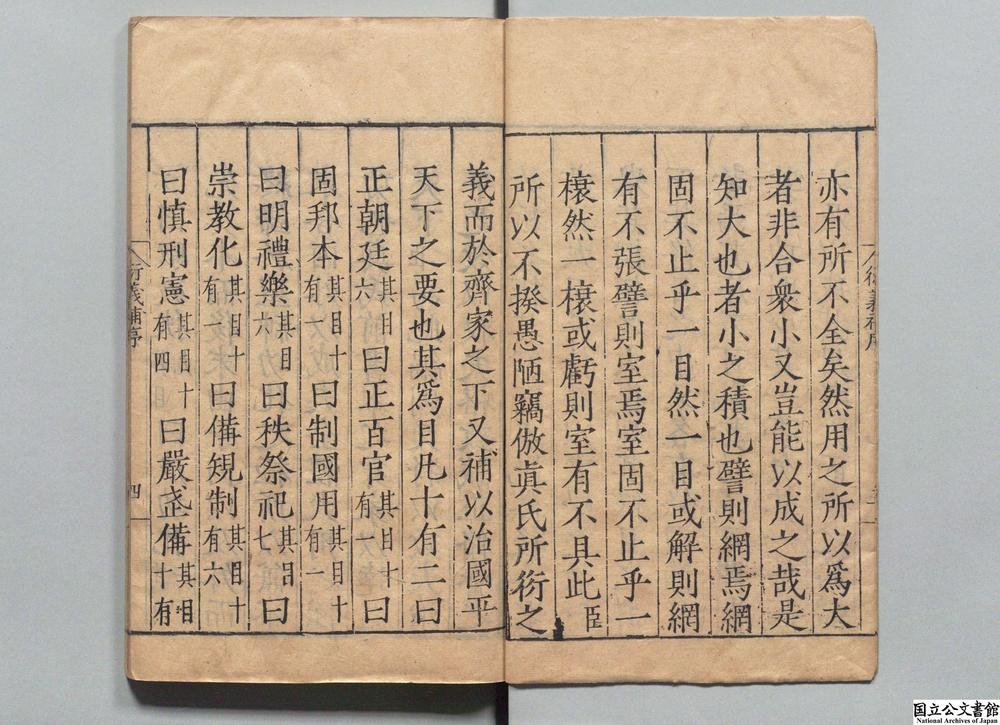 亦有所不全矣然用之所以爲大
者非合衆小又豈能以成之哉是
知大也者小之積也譬則網焉網
固不止乎一目然一目或解則網
有不張譬則室焉室固不止乎一
榱然一榱或虧則室有不具此臣
所以不揆愚陋竊倣真氏所衍之
義而於齊家之下又補以治國平
天下之要也其爲目凡十有二曰
正朝廷其目六曰正百官其目十有一曰
固邦本其目十有一曰制國用其目十有一
曰明禮樂其目六曰秩祭祀其目七曰
崇教化其目十有一曰備規制其目十有六
曰慎刑憲其目十有四曰嚴武備其目十有
衍義補序
四
国立公文書館
National Archives of Japan